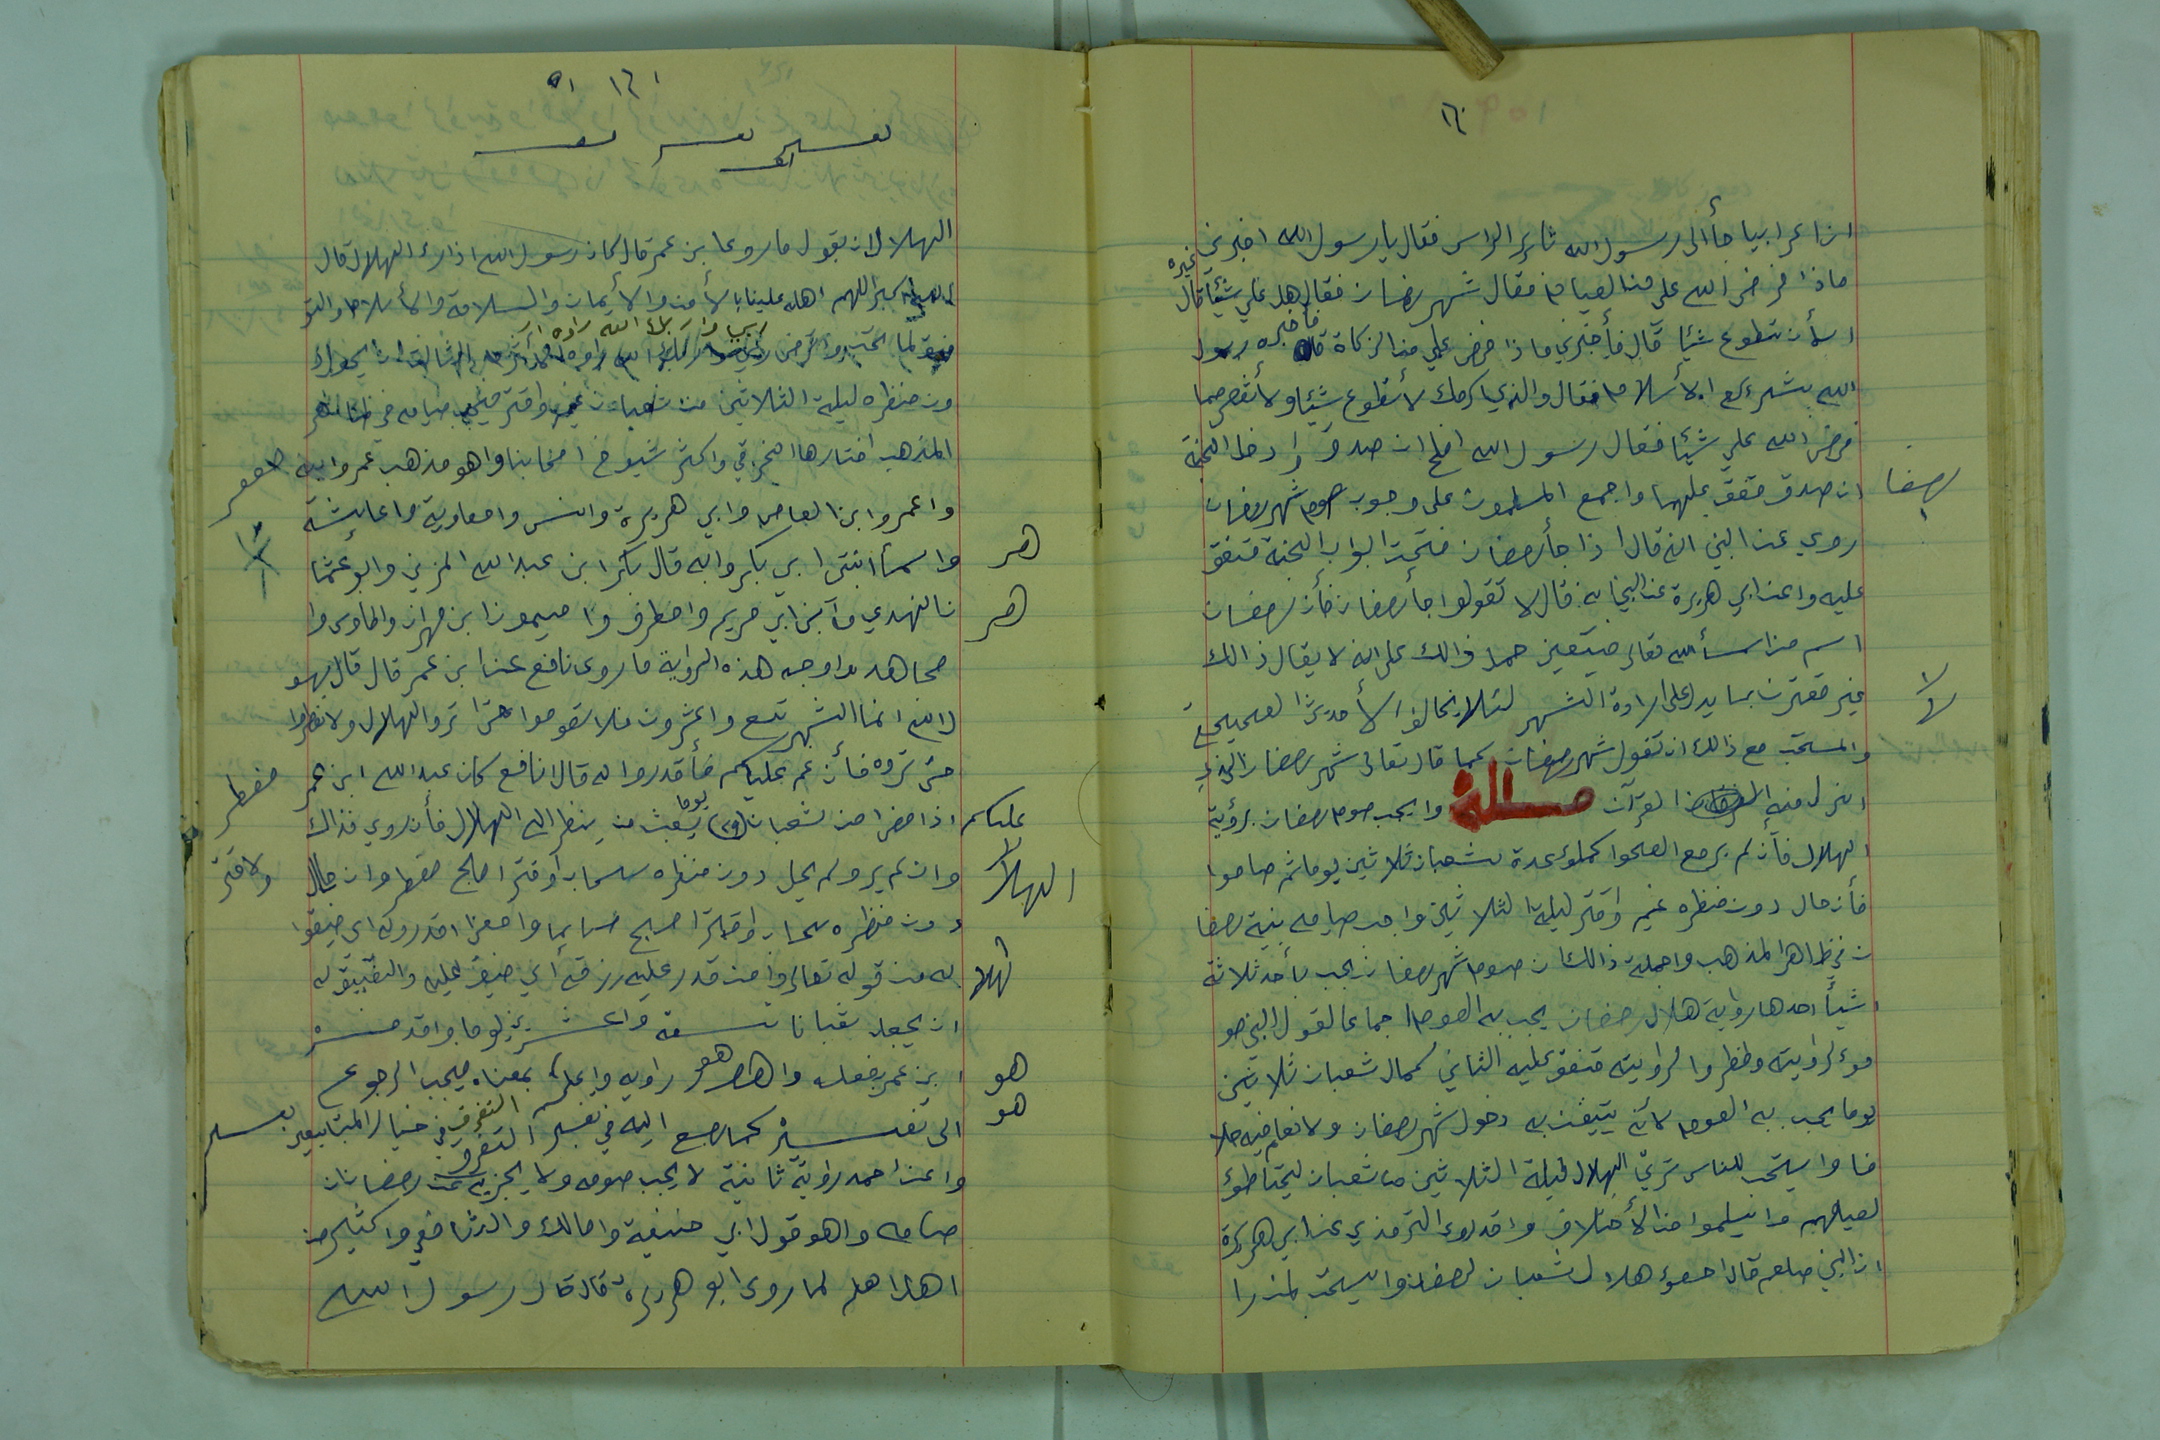 ١٦٠
ان اعرابيا جأ الى رسول الله ثائر الراس فقال يا رسول الله اخبرني
ماذا فرض الله علي من الصيام فقال شهر رمضان فقال هل علي غيره قال
الا أن تطوع شيئا قال فأخبرني ماذا فرض علي من الزكاة قال فأخبره رسول
الله بشرائع الأسلام فقال والذي اكرمك لا أتطوع شيئا ولا أنقص مما
فرض الله علي شيئا فقال رسول الله افلح ان صدق او دخل الجنة
ان صدق متفق عليهما واجمع المسلمون على وجوب صوم شهر رمضان
روي عن النبي انه قال اذا جأ رمضان فتحت ابواب الجنة متفق
عليه واعن ابي هريرة عن النبي انه قال لا تقولوا جأ رمضان فأن رمضان
اسم من اسمأ الله تعالى فيتعين حمل ذالك على انه لا يقال ذالك
غير مقترن بما يدل على ارادة الشهر لئلا يخالف الأحاديث الصحيحة
والمستحب مع ذالك ان تقول شهر رمضان كما قال تعالى شهر رمضان الذي
انزل فيه القرآن مسالة وايجب صوم رمضان برؤية
الهلال فأن لم ير مع الصحو اكملو عدة شعبان ثلاثين يوما ثم صاموا
فأن حال دون منظره غيم اوقتر ليلة الثلاثين واجب صيامه بنية رمضا
ن في ظاهر المذهب واجملة ذالك ان صوم شهر رمضان يجب بأحد ثلاثة
اشيأ احدها رواية هلال رمضان يجب به الصوم اجماعا لقول النبي صو
موء لراويته وافطروا لراويته متفق عليه الثاني كمال شعبان ثلاثين
يوما يجب به الصوم لأنه يتيقن به دخول شهر رمضان ولا نعلم فيه خلا
فا وايستحب للناس ترئ الهلال ليلة الثلاثين من شعبان ليحتاطوء
لصيامهم وايسلموا من الأختلاف واقدروى الترمذي عن ابي هريرة
ان النبي صلعم قال احصوء هلال شعبان لرمضان وايستحب لمن را
رمضا
لا
١٦١
الهلال ان يقول ما روى ابن عمر قال كان رسول الله اذا رئ الهلال قال
الله اكبر اللهم اهله علينا بالأمن والأيمان والسلامة والأسلام والتو
فيق لما تحب واترضى ربي وربك الله راوه الأثرم الثالث ان يحول
دون منظره ليلة الثلاثين من شعبان غيم واقتر فيجب صيامه في ظاهر
المذهب اختارها الخرقي واكثر شيوخ اصحابنا واهو مذهب عمر وابنه
واعمر وابن العاص وابي هريرة وانس وامعاوية واعائشة
واسمأ ابنتي ابي بكر وابه قال بكر ابن عبد الله المزني وابو عثما
ن النهدي وابن ابي مريم وامطرف واميمون ابن مهران والطاوس وا
مجاهد واوجه هذه الراوية ما روى نافع عن ابن عمر قال قال رسو
ل الله انما الشهر تسع واعشرون فلا تقوموا حتى تروا الهلال ولا تفطروا
حتى تروه فأن غم عليكم فأقدروا له قال نافع كان عبد الله ابن عمر
اذا مضا من شعبان (٢٩) يوما يبعث من ينظر اليه الهلال فأن روي فذاك
وان لم ير ولم يحل دون منظره سحاب اوقتر اصبح مفطر وان حال
دون منظره سحاب اوقتر اصبح صايما وامعنا اقدروله اي ضيقوا
له من قوله تعالى وامن قدر عليه رزقه أي ضيق عليه والتضييق له
ان يجعل شعبان تسعة واعشرين يوما واقد فسره
ابن عمر بفعله واهو راويه واعلم بمعناه فيجب الرجوع
الى تفسيره كما رجع اليه في تفسير التفرق في خيار المتبايعين
واعن احمد رواية ثانية لا يجب صومه ولا يجزيه عن رمضان ان
صامه واهو قول ابي حنيفة وامالك والشافعي واكثير من
اهل العلم لما روى ابو هريرة قال قال رسول الله
هر
هر
عليكم
الهلا
هو
هو
مفطر